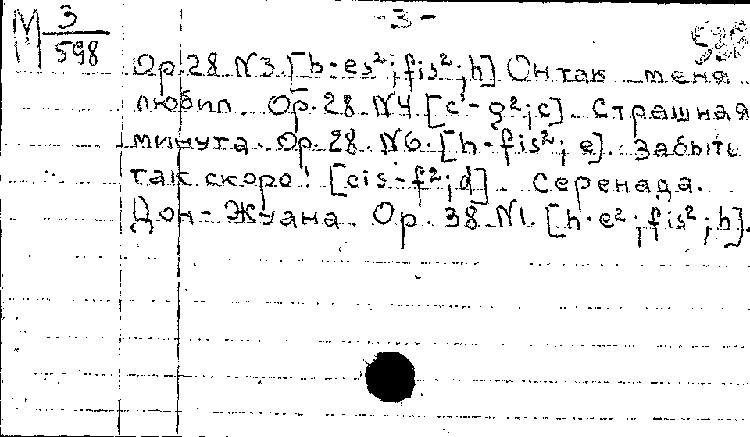 М 3/598
- 3 -
Op. 28 N3. [b - es²; fis²; h] Он так меня
любил. Op. 28 N4 [c' - g²; c]. Страшная
минута. Op. 28. N6. [h - fis²; e]. Забыть
так скоро! [cis - f²; d]. Серенада.
Дон-Жуана. Op. 38 N1. [h - e²; fis²; h].